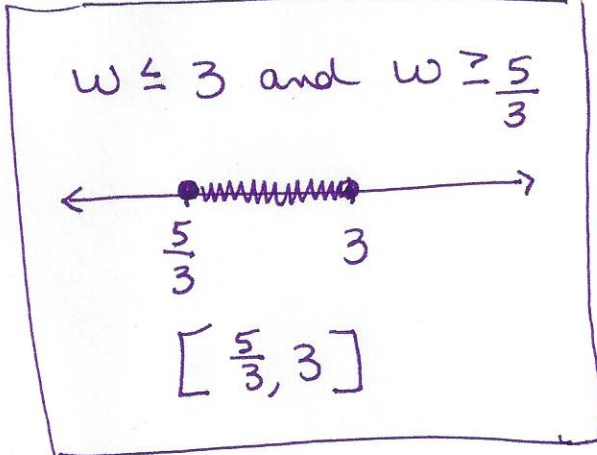 w ≤ 3 and w ≥ 5/3
5/3 3
[5/3, 3]